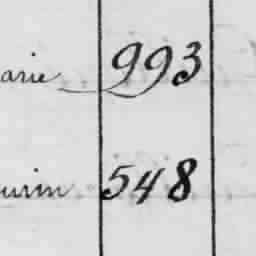 arie 993
urin 548